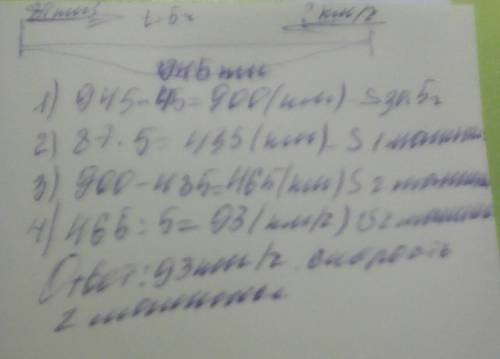 t 5ч ? км/ч
945 км
1) 945-45=900(км)-S за 5ч
2) 87·5=435(км)-S 1 машины
3) 900-435=465(км) S 2 машины
4) 465:5=93(км/ч) υ 2 машины
Ответ: 93 км/ч скорость
2 машины